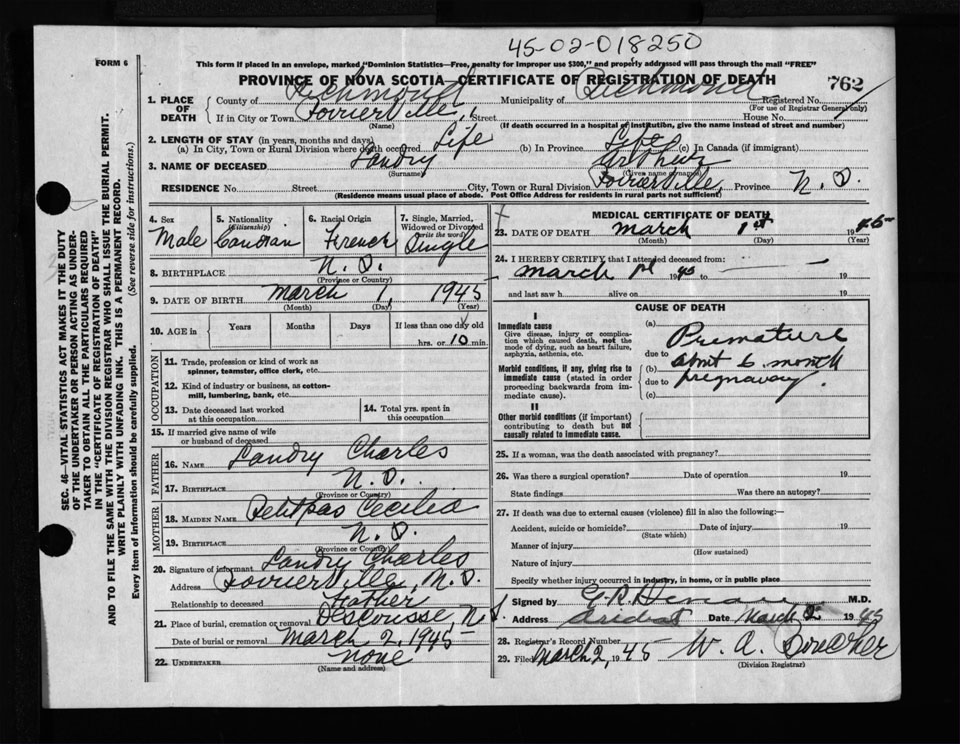 45-02-018250
FORM 6
This form if placed in an envelope, marked "Dominion Statistics—Free, penalty for improper use $300," and properly addressed will pass through the mail "FREE"
PROVINCE OF NOVA SCOTIA CERTIFICATE OF REGISTRATION OF DEATH
762
1. PLACE OF DEATH
County of Richmond Municipality of Richmond Registered No.
(For use of Registrar General only)
If in City or Town Poirierville, Street House No.
(Name) (If death occurred in a hospital or institution, give the name instead of street and number)
2. LENGTH OF STAY (in years, months and days)
(a) In City, Town or Rural Division where death occurred Life (b) In Province Life (c) In Canada (if immigrant)
3. NAME OF DECEASED Landry Arthur
(Surname) (Given name or names)
RESIDENCE No. Street City, Town or Rural Division Poirierville, Province N. S.
(Residence means usual place of abode. Post Office Address for residents in rural parts not sufficient)
4. Sex
Male
5. Nationality
(Citizenship)
Canadian
6. Racial Origin
French
7. Single, Married, Widowed or Divorced
(write the word)
Single
8. BIRTHPLACE N. S.
(Province or Country)
9. DATE OF BIRTH March 1, 1945
(Month) (Day) (Year)
10. AGE in Years Months Days If less than one day old
hrs. or 10 min.
OCCUPATION
11. Trade, profession or kind of work as
spinner, teamster, office clerk, etc.
12. Kind of industry or business, as cotton-
mill, lumbering, bank, etc.
13. Date deceased last worked
at this occupation
14. Total yrs. spent in
this occupation
15. If married give name of wife
or husband of deceased
FATHER
16. NAME Landry Charles
17. BIRTHPLACE N. S.
(Province or Country)
MOTHER
18. MAIDEN NAME Petitpas Cecilia
19. BIRTHPLACE N. S.
(Province or Country)
20. Signature of informant Landry Charles
Address Poirierville, N. S.
Relationship to deceased Father
21. Place of burial, cremation or removal Descousse, N. S.
Date of burial or removal March 2, 1945
22. UNDERTAKER None
(Name and address)
MEDICAL CERTIFICATE OF DEATH
23. DATE OF DEATH March 1st 1945
(Month) (Day) (Year)
24. I HEREBY CERTIFY, that I attended deceased from:
March 1945 to 19
and last saw h alive on 19
CAUSE OF DEATH
I
Immediate cause
Give disease, injury or complica-
tion which caused death, not the
mode of dying, such as heart failure,
asphyxia, asthenia, etc.
Morbid conditions, if any, giving rise to
immediate cause (stated in order
proceeding backwards from im-
mediate cause).
II
Other morbid conditions (if important)
contributing to death but not
causally related to immediate cause.
(a) Premature
due to
(b) about 6 month
due to pregnancy.
(c)
25. If a woman, was the death associated with pregnancy?
26. Was there a surgical operation? Date of operation 19
State findings Was there an autopsy?
27. If death was due to external causes (violence) fill in also the following:—
Accident, suicide or homicide? Date of injury 19
(State which)
Manner of injury
(How sustained)
Nature of injury
Specify whether injury occurred in industry, in home, or in public place
Signed by M.D.
Address Arichat Date March 2 1945
28. Registrar's Record Number
29. Filed March 2, 1945 W. A. Boucher
(Division Registrar)
SEC. 46—VITAL STATISTICS ACT MAKES IT THE DUTY
OF THE UNDERTAKER OR PERSON ACTING AS UNDER-
TAKER TO OBTAIN ALL THE PARTICULARS REQUIRED
IN THE "CERTIFICATE OF REGISTRATION OF DEATH"
AND TO FILE THE SAME WITH THE DIVISION REGISTRAR WHO SHALL ISSUE THE BURIAL PERMIT.
WRITE PLAINLY WITH UNFADING INK. THIS IS A PERMANENT RECORD.
Every item of information should be carefully supplied. (See reverse side for instructions.)